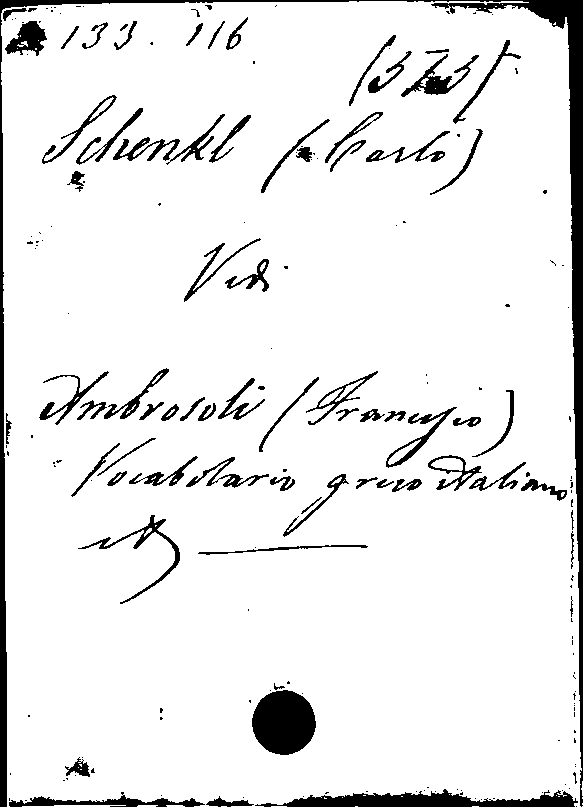 133. 116
(373)
Schenkl (Carlo)
Vedi
Ambrosoli (Francesco)
Vocabolario greco italiano